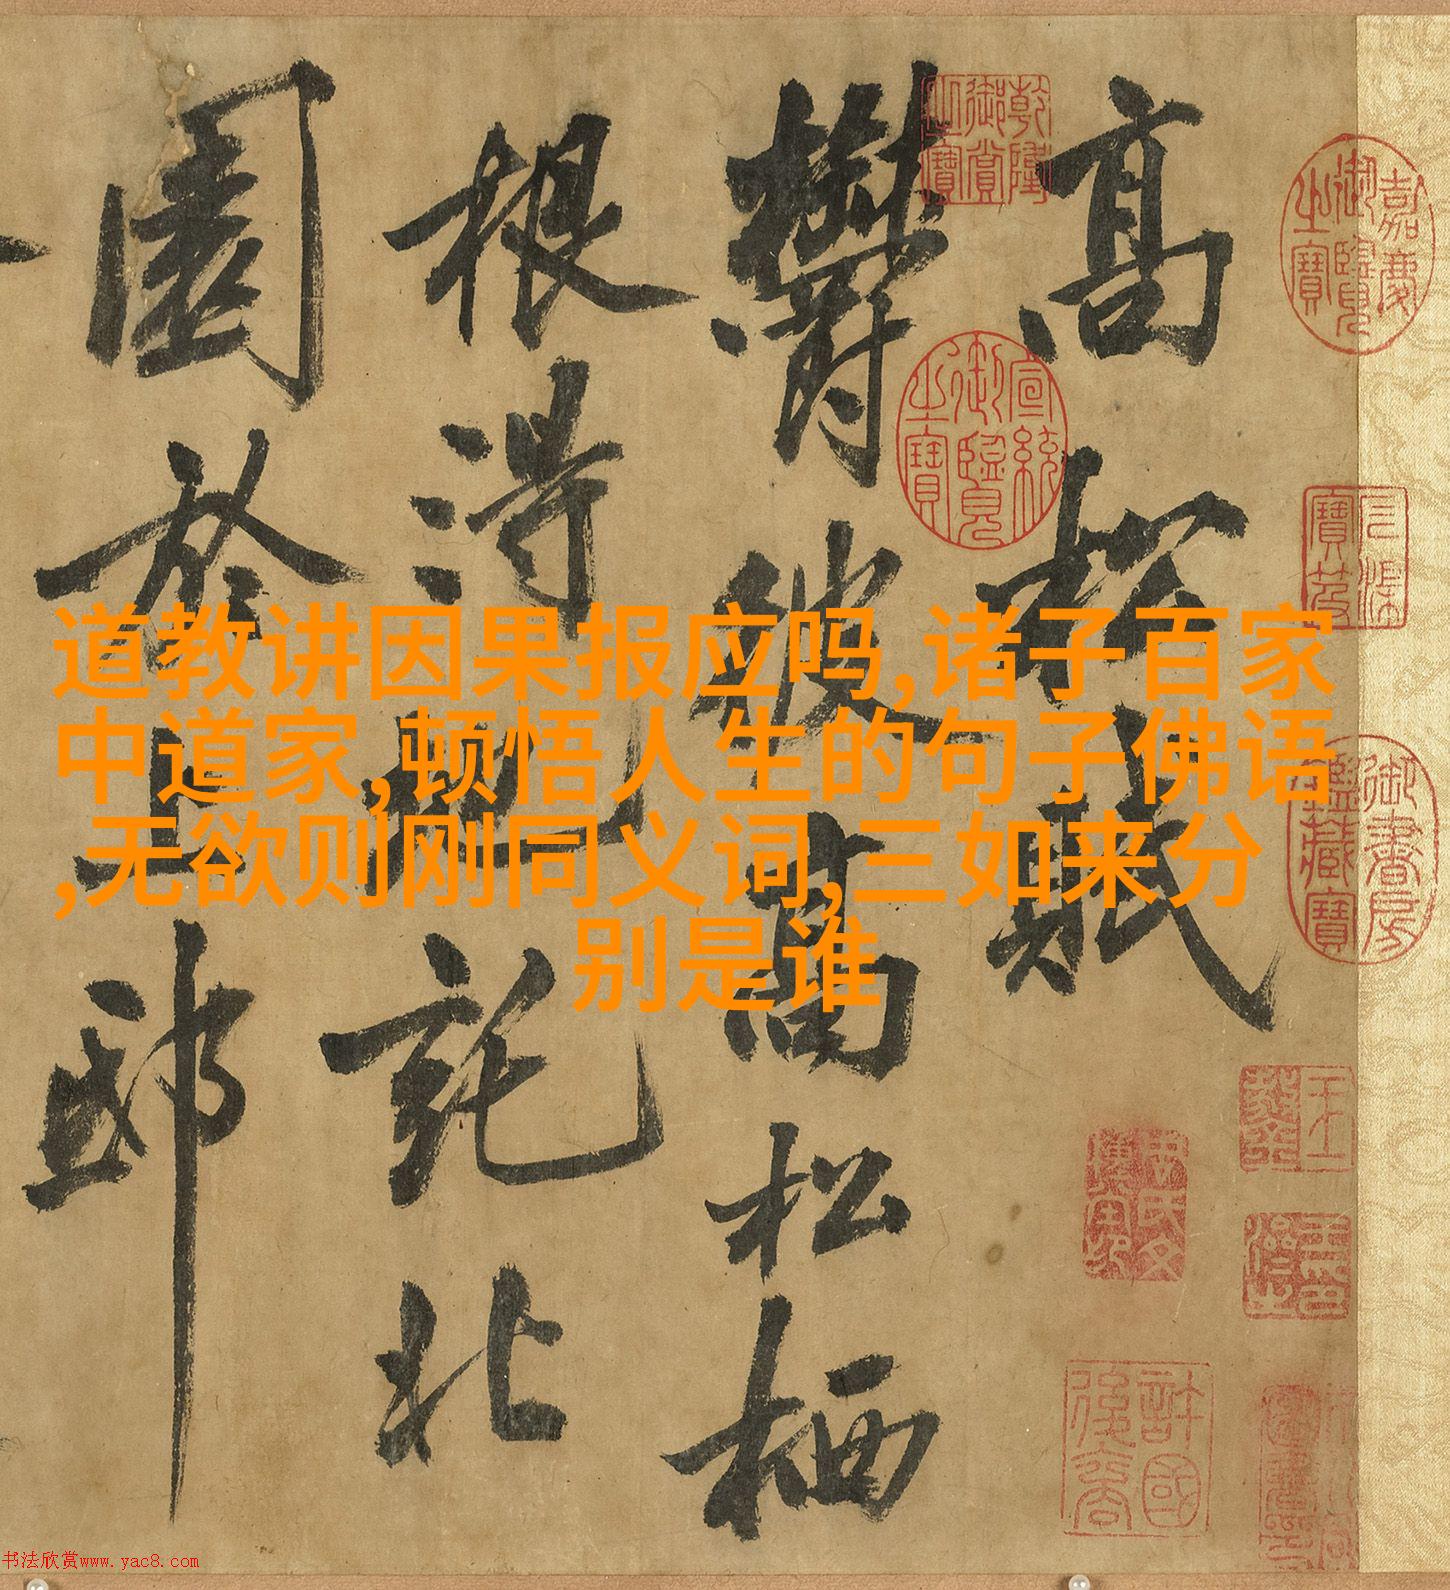 道教讲因果报应吗,诸子百家
中道家,顿悟人生的句子佛语
,无欲则刚同义词,三如来分
别是谁
高松
鬱彼高松栖
根得地託北
園於上邸
乾隆御賞之寶
嘉慶御覽之寶
宣統御覽之寶
御書房鑑藏寶
书法欣赏www.yac8.com